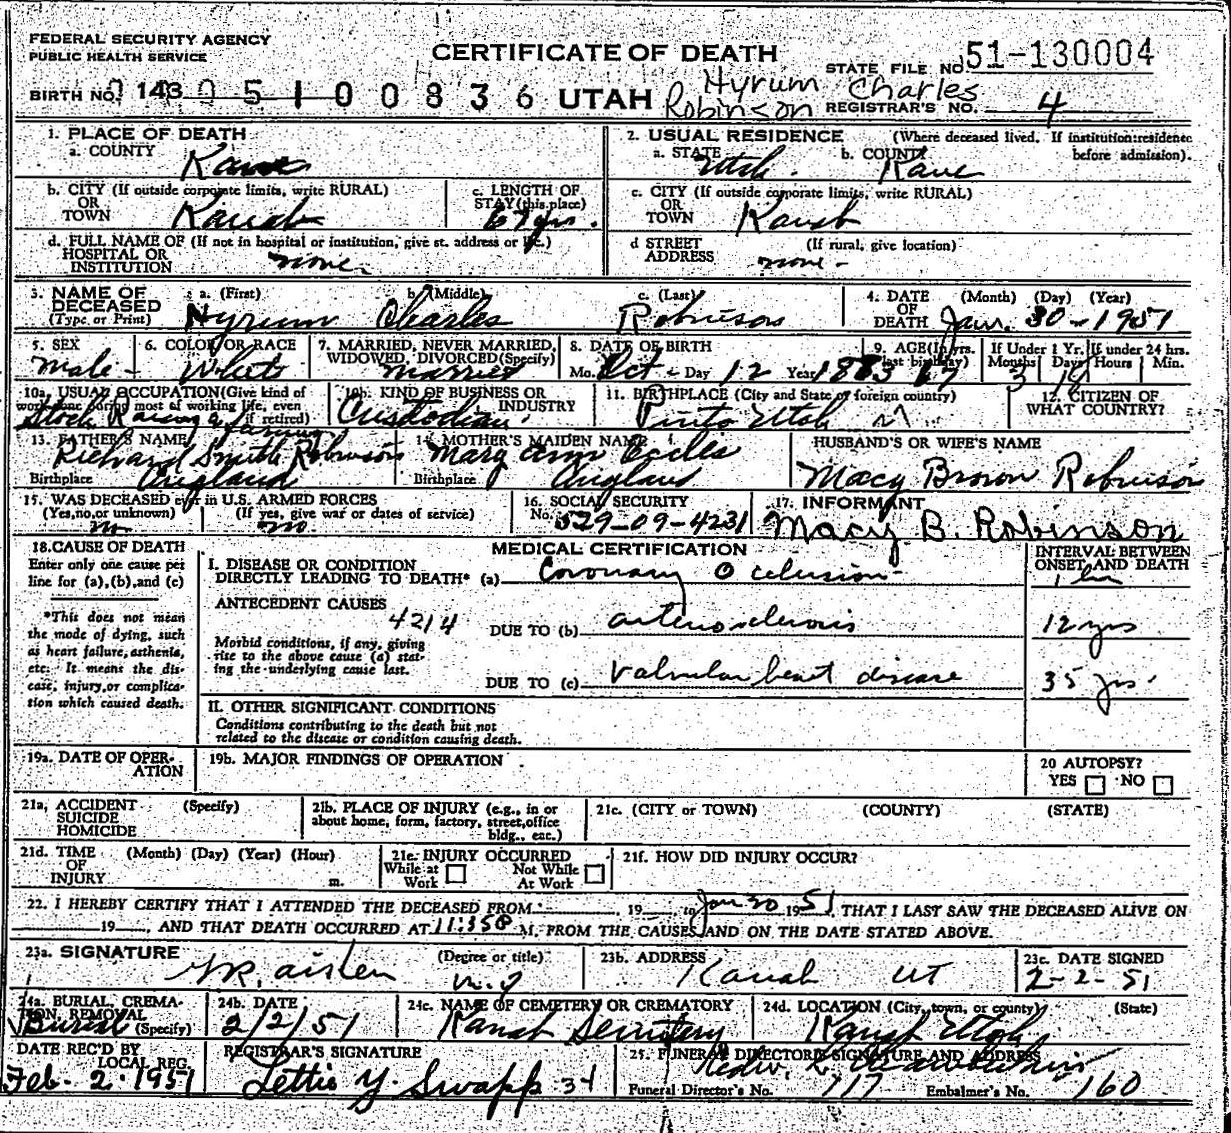 FEDERAL SECURITY AGENCY
PUBLIC HEALTH SERVICE
CERTIFICATE OF DEATH
STATE FILE NO. 51-130004
BIRTH NO. 143 0 5 1 0 0 8 3 6 UTAH
Hyrum Charles
Robinson
REGISTRAR'S NO. 4
1. PLACE OF DEATH
a. COUNTY Kane
2. USUAL RESIDENCE (Where deceased lived. If institution:residence before admission).
a. STATE Utah. b. COUNTY Kane
b. CITY (If outside corporate limits, write RURAL)
OR
TOWN Kanab
c. LENGTH OF
STAY (this place) 67 yrs.
c. CITY (If outside corporate limits, write RURAL)
OR
TOWN Kanab
d. FULL NAME OF (If not in hospital or institution, give st. address or
HOSPITAL OR
INSTITUTION none
d STREET (If rural, give location)
ADDRESS none -
3. NAME OF
DECEASED
(Type or Print)
a. (First) Hyrum
b. (Middle) Charles
c. (Last) Robinson
4. DATE (Month) (Day) (Year)
OF
DEATH Jan. 30-1951
5. SEX
male -
6. COLOR OR RACE
White
7. MARRIED, NEVER MARRIED,
WIDOWED, DIVORCED(Specify)
married
8. DATE OF BIRTH
Mo. Oct - Day 12 Year 1883
9. AGE(In yrs. last birthday) 67
If Under 1 Yr. Months 3 Days 18
If under 24 hrs. Hours Min.
10a. USUAL OCCUPATION(Give kind of
work done during most of working life, even
if retired)
Stock Raising & farming
10b. KIND OF BUSINESS OR
INDUSTRY
Custodian
11. BIRTHPLACE (City and State or foreign country)
Pinto Utah
12. CITIZEN OF
WHAT COUNTRY?
13. FATHER'S NAME
Richard Smith Robinson
Birthplace England
14. MOTHER'S MAIDEN NAME
Mary Ann Eccles
Birthplace England
HUSBAND'S OR WIFE'S NAME
Macy Brown Robinson
15. WAS DECEASED ever in U.S. ARMED FORCES
(Yes,no,or unknown) (If yes, give war or dates of service)
no no
16. SOCIAL SECURITY
No. 529-09-4231
17. INFORMANT
Macy B. Robinson
18. CAUSE OF DEATH
Enter only one cause per
line for (a), (b), and (c)
*This does not mean
the mode of dying, such
as heart failure, asthenia,
etc. It means the dis-
ease, injury, or complica-
tion which caused death.
MEDICAL CERTIFICATION
INTERVAL BETWEEN
ONSET AND DEATH
I. DISEASE OR CONDITION
DIRECTLY LEADING TO DEATH* (a) Coronary Occlusion 1 hr
ANTECEDENT CAUSES
4214
Morbid conditions, if any, giving
rise to the above cause (a) stat-
ing the underlying cause last.
DUE TO (b) arteriosclerosis 12 yrs
DUE TO (c) Valvular heart disease 35 yrs.
II. OTHER SIGNIFICANT CONDITIONS
Conditions contributing to the death but not
related to the disease or condition causing death.
19a. DATE OF OPER-
ATION
19b. MAJOR FINDINGS OF OPERATION
20 AUTOPSY?
YES NO
21a, ACCIDENT (Specify)
SUICIDE
HOMICIDE
21b. PLACE OF INJURY (e.g., in or
about home, form, factory, street,office
bldg., etc.)
21c. (CITY or TOWN) (COUNTY) (STATE)
21d. TIME (Month) (Day) (Year) (Hour)
OF
INJURY m.
21e. INJURY OCCURRED
While at Work Not While At Work
21f. HOW DID INJURY OCCUR?
22. I HEREBY CERTIFY THAT I ATTENDED THE DECEASED FROM 19 to Jan 30 1951, THAT I LAST SAW THE DECEASED ALIVE ON
19 , AND THAT DEATH OCCURRED AT 11:35P M, FROM THE CAUSES AND ON THE DATE STATED ABOVE.
23a. SIGNATURE (Degree or title)
Aiken M.D
23b. ADDRESS
Kanab UT
23c. DATE SIGNED
2-2-51
24a. BURIAL, CREMA-
TION, REMOVAL
(Specify) Burial
24b. DATE
2/2/51
24c. NAME OF CEMETERY OR CREMATORY
Kanab Cemetery
24d. LOCATION (City, town, or county) (State)
Kanab Utah
DATE REC'D BY
LOCAL REG.
Feb. 2. 1951
REGISTRAR'S SIGNATURE
Lettie Y. Swapp 31
25. FUNERAL DIRECTORS SIGNATURE AND ADDRESS
Funeral Director's No. 717 Embalmer's No. 160